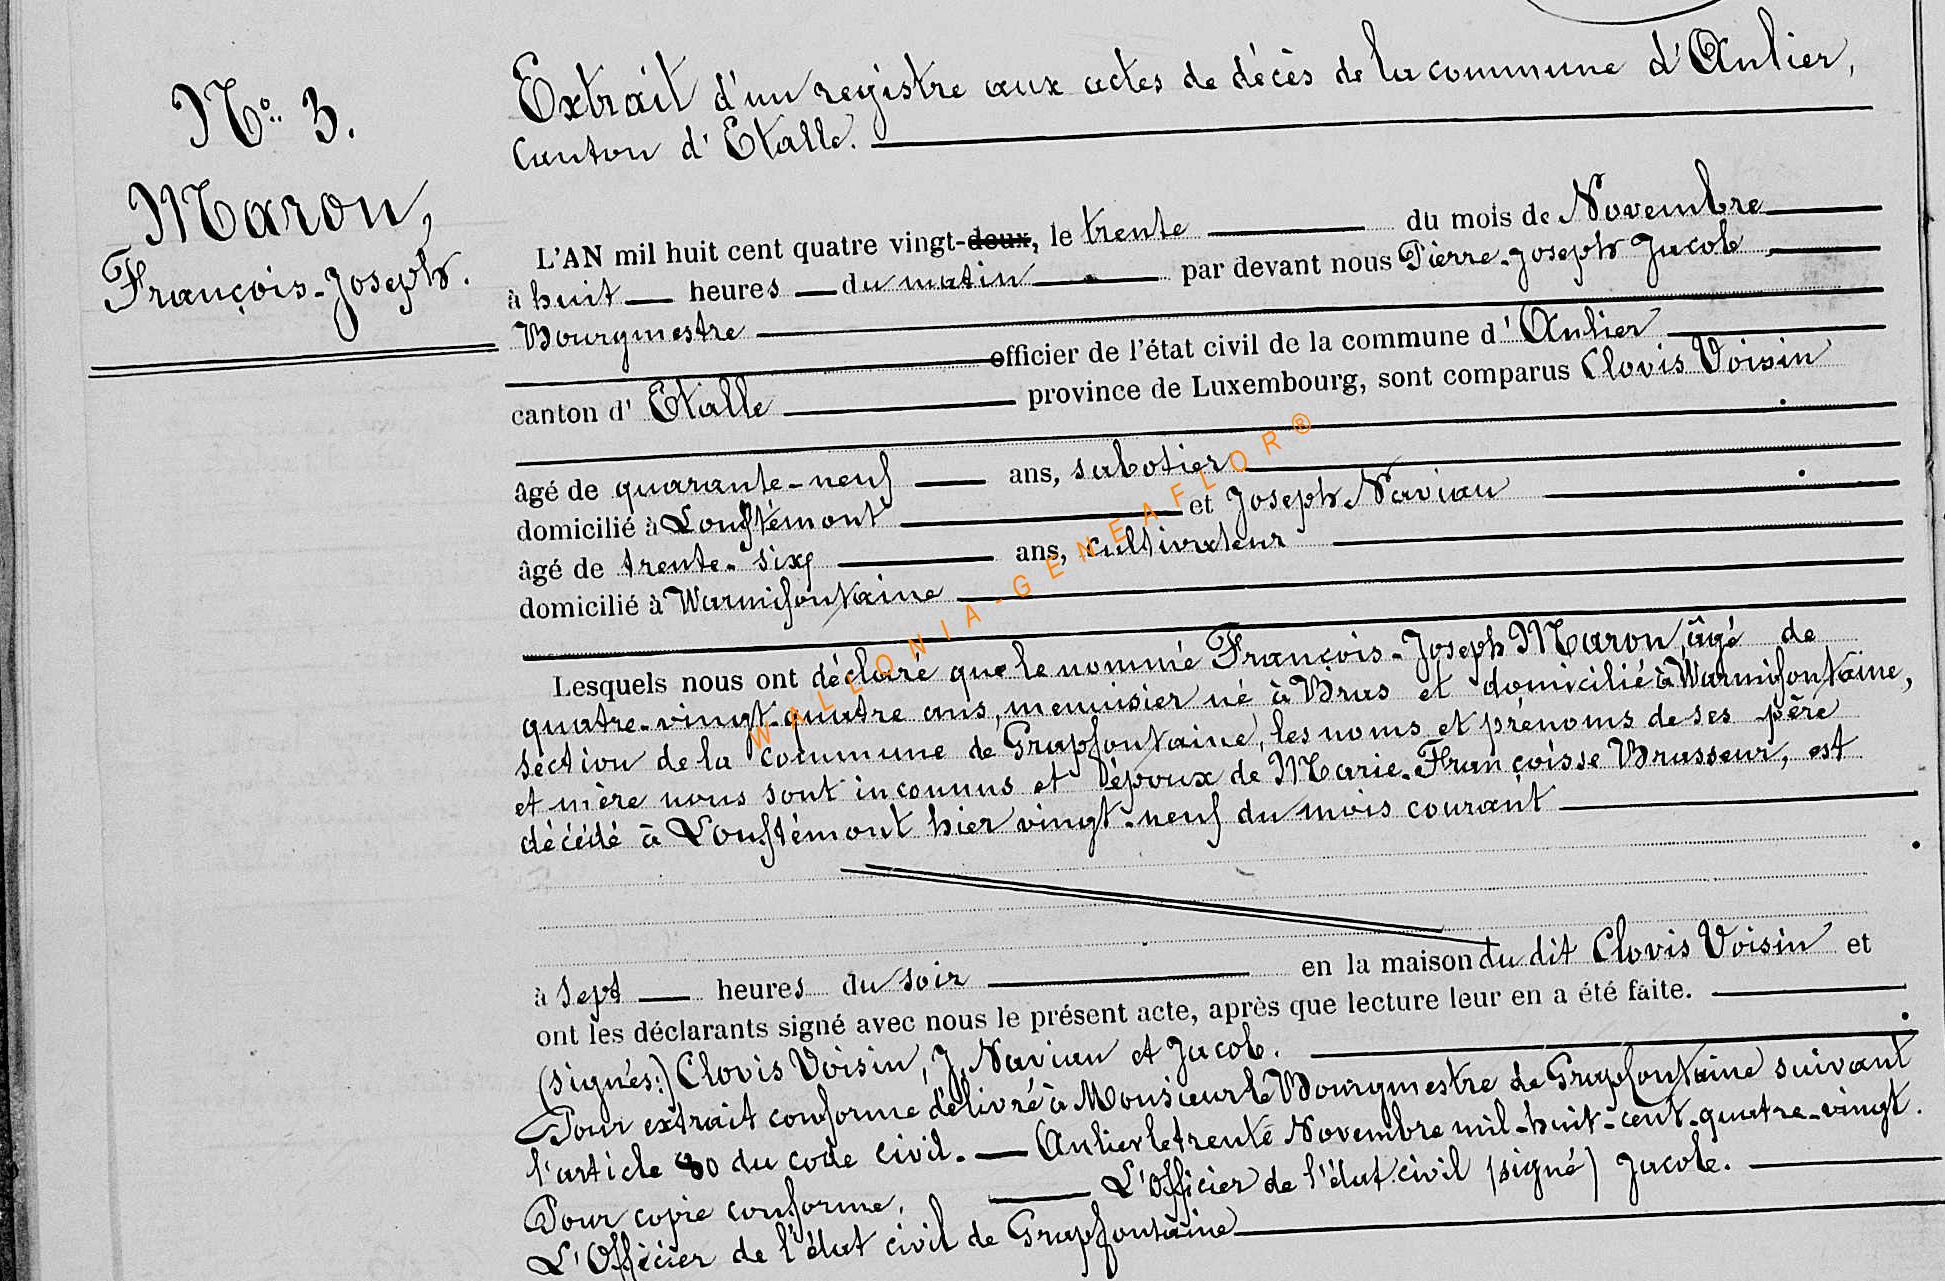 N° 3.
Maron,
François-Joseph.
Extrait d'un registre aux actes de décès de la commune d'Anlier,
Canton d'Etalle.
L'AN mil huit cent quatre vingt-deux, le trente du mois de Novembre
à huit heures du matin par devant nous Pierre-Joseph Jacob
Bourgmestre
officier de l'état civil de la commune d'Anlier
canton d'Etalle province de Luxembourg, sont comparus Clovis Voisin
âgé de quarante-neuf ans, sabotier
domicilié à Louftémont et Joseph Naviau
âgé de trente-six ans, cultivateur
domicilié à Warmifontaine
Lesquels nous ont déclaré que le nommé François-Joseph Maron, âgé de
quatre-vingt-quatre ans, menuisier né à Bras et domicilié à Warmifontaine,
section de la commune de Grapfontaine, les noms et prénoms de ses père
et mère nous sont inconnus et l'époux de Marie-Françoisse Brasseur, est
décédé à Louftémont hier vingt-neuf du mois courant
à sept heures du soir en la maison du dit Clovis Voisin et
ont les déclarants signé avec nous le présent acte, après que lecture leur en a été faite.
(signés:) Clovis Voisin, J. Naviau et Jacob.
Pour extrait conforme délivré à Monsieur le Bourgmestre de Grapfontaine suivant
l'article 80 du code civil. — Anlier le trente Novembre mil-huit-cent-quatre-vingt.
Pour copie conforme, L'Officier de l'état civil (signé) Jacob.
L'Officier de l'état civil de Grapfontaine
WALLONIA-GENEAFLOR®